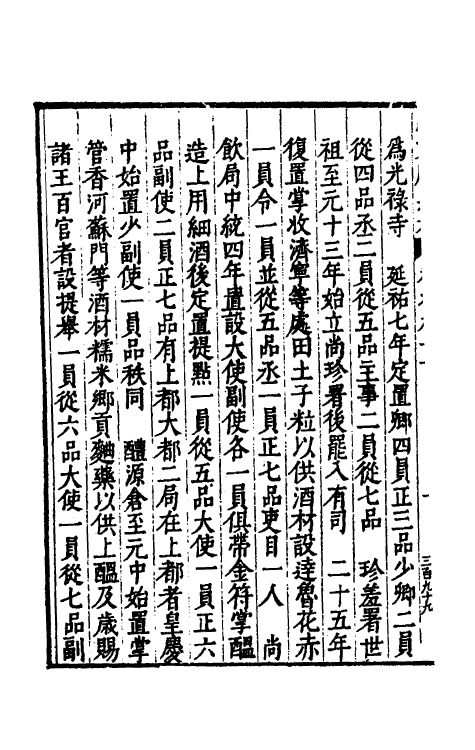 爲光祿寺　延祐七年定置卿四員正三品少卿二員
從四品丞二員從五品主事二員從七品　珍羞署世
祖至元十三年始立尚珍署後罷入有司　二十五年
復置掌收濟寧等處田土子粒以供酒材設達魯花赤
一員令一員並從五品丞一員正七品吏目一人　尚
飲局中統四年置設大使副使各一員俱帶金符掌醞
造上用細酒後定置提點一員從五品大使一員正六
品副使二員正七品有上都大都二局在上都者皇慶
中始置少副使一員品秩同　醴源倉至元中始置掌
管香河蘇門等酒材糯米鄉貢麯藥以供上醞及歲賜
諸王百官者設提舉一員從六品大使一員從七品副